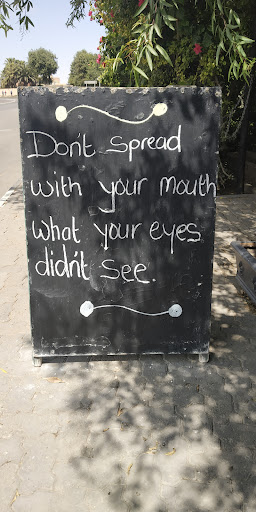 Don't spread
with your mouth
what your eyes
didn't see.